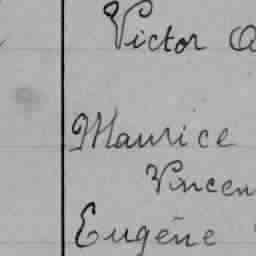 Victor
Maurice
Vincen
Eugène